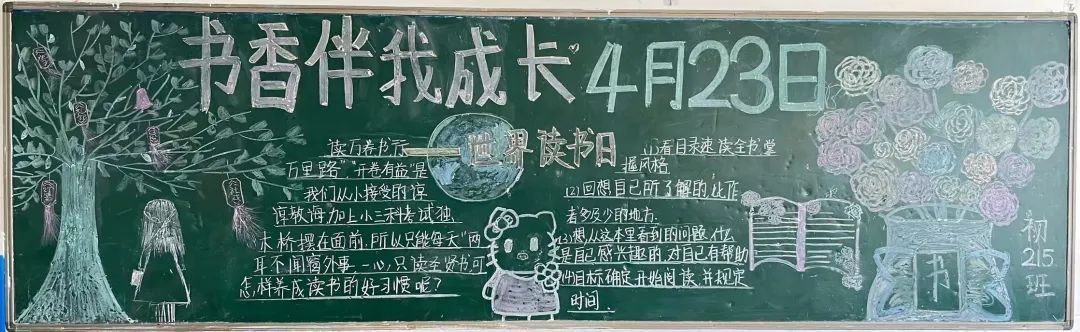 书香伴我成长
4月23日
世界读书日
读万卷书行
万里路""开卷有益"是
我们从小接受的谆
谆教海加上小三科考试独
木桥摆在面前,所以只能每天"两
耳不闻窗外事,一心只读圣贤书可
怎样养成读书的好习惯呢?
(1)看目录速读全书掌
握风格
(2)回想自己所了解的比作
者多及少的地方.
(3)想从这本里看到的问题.什么
是自己感兴趣的.对自己有帮助
(4)目标确定开始阅读,并规定
时间.
书
初
215
班